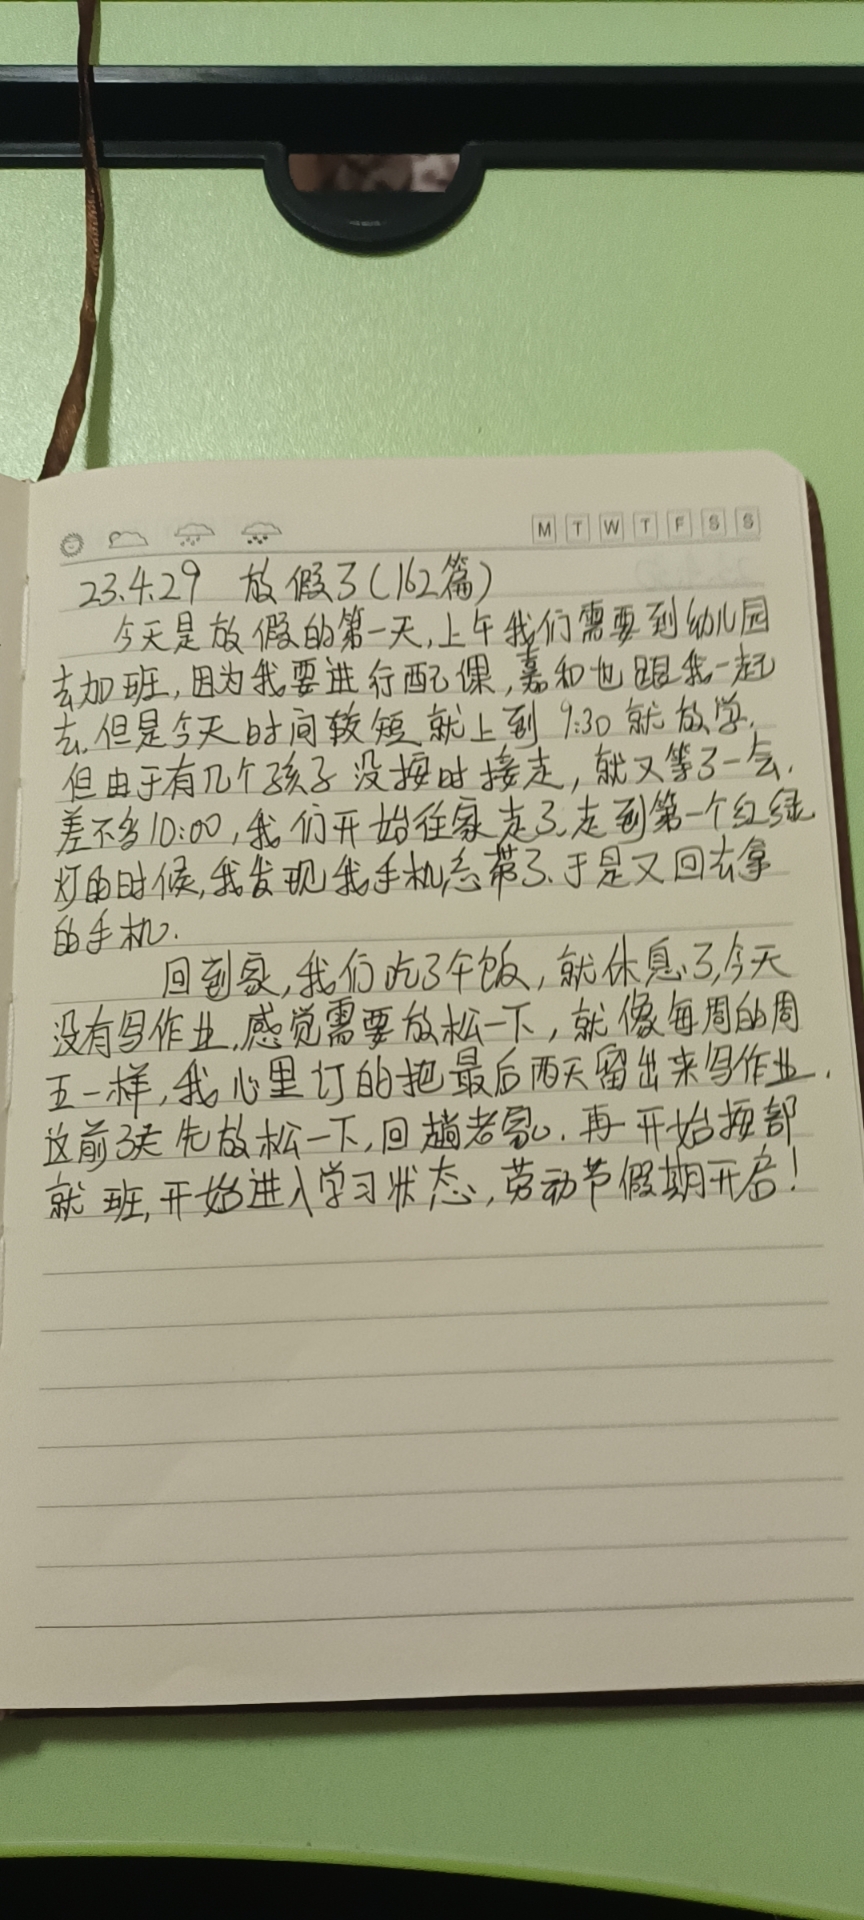 M T W T F S S
23.4.29 放假了(162篇)
今天是放假的第一天,上午我们需要到幼儿园
去加班,因为我要进行配课,嘉和也跟我一起
去.但是今天时间较短就上到9:30就放学.
但由于有几个孩子没按时接走,就又等了一会.
差不多10:00,我们开始往家走了.走到第一个红绿
灯的时候,我发现我手机忘带了.于是又回去拿
的手机.
回到家,我们吃了午饭,就休息了,今天
没有写作业.感觉需要放松一下,就像每周的周
五一样,我心里订的把最后两天留出来写作业.
这前3天先放松一下,回趟老家.再开始按部
就班,开始进入学习状态,劳动节假期开启!